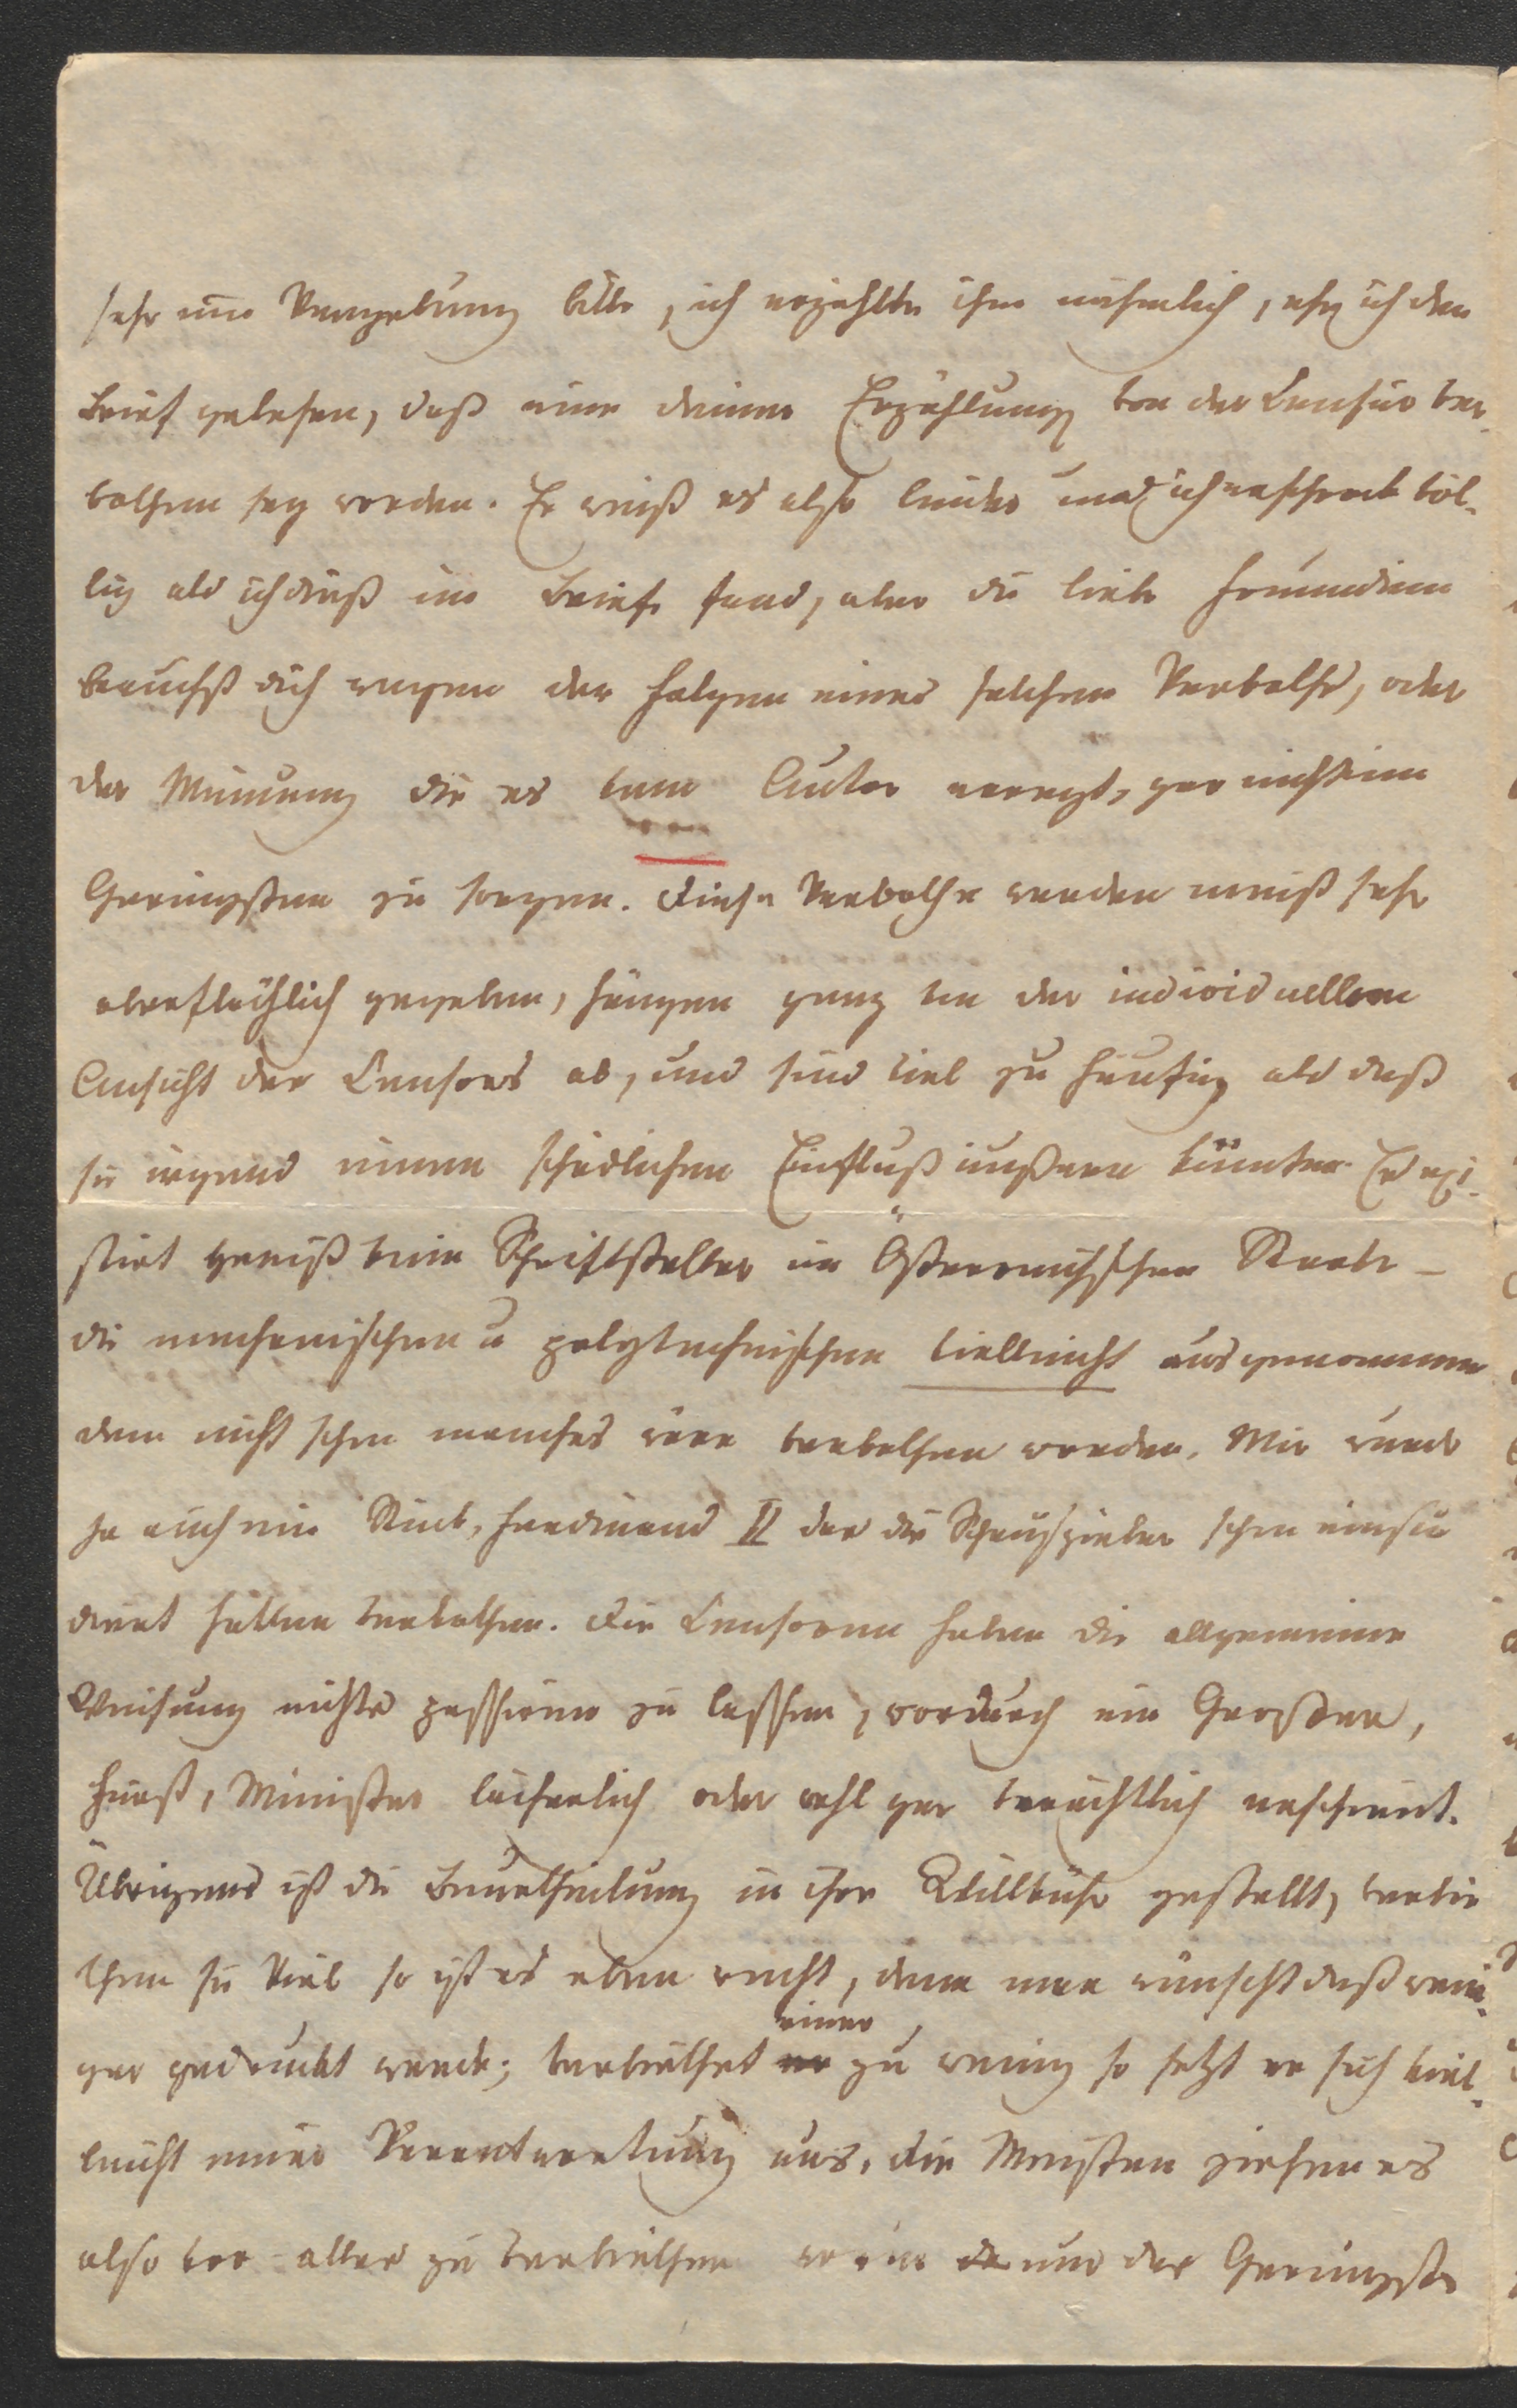 sehr um Vergebung bitte, ich erzählte ihm nähmlich, ehe ich den
Brief gelesen, daß eine deiner Erzählung von der Censur ver-
bothen sey worden. Er weiß es also leider und ich erschrack völ-
lig als ich dieß im Briefe fand, aber du liebe Freundinn
brauchst dich wegen der Folgen eines solchen Verboths, oder
der Meinung die es vom Autor erregt, gar nicht im
Geringsten zu sorgen. Diese Verbothe werden meist sehr
oberflächlich gegeben, hängen ganz von der individuellen
Ansicht der Censors ab, und sind viel zu häufig als daß
sie irgend einen schädlichen Einfluß äußern könnten. Es exi-
stirt gewiß kein Schriftsteller im Österreichischen Staate –
die mechanischen u polytechnischen vielleicht ausgenommen
dem nicht schon manches wäre verbothen worden. Mir wurde
ja auch ein Stück, Ferdinand II das die Schauspieler schon einstu
dirt hatten verbothen. Die Censoren haben die allgemeine
Weisung nichts passieren zu lassen, wordurch ein Großer,
Fürst, Minister lächerlich oder wohl gar verächtlich erscheint.
Übrigens ist die Beurtheilung in ihre Willkühr gestellt, verbie
then sie Viel so ist es eben recht, denn man wünscht daß weni-
ger gedruckt werde; verbiethet einer zu wenig so setzt er sich viel-
leicht einer Verantwortung aus, die Meisten ziehen es
also vor alles zu verbiethen wo nur das Geringste